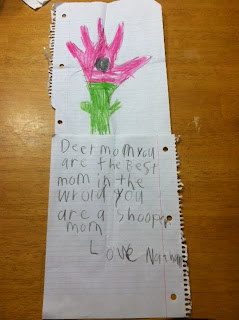 Deer mom you
are the Best
mom in the
wrold you
are a shooper
mom
Love Nathan